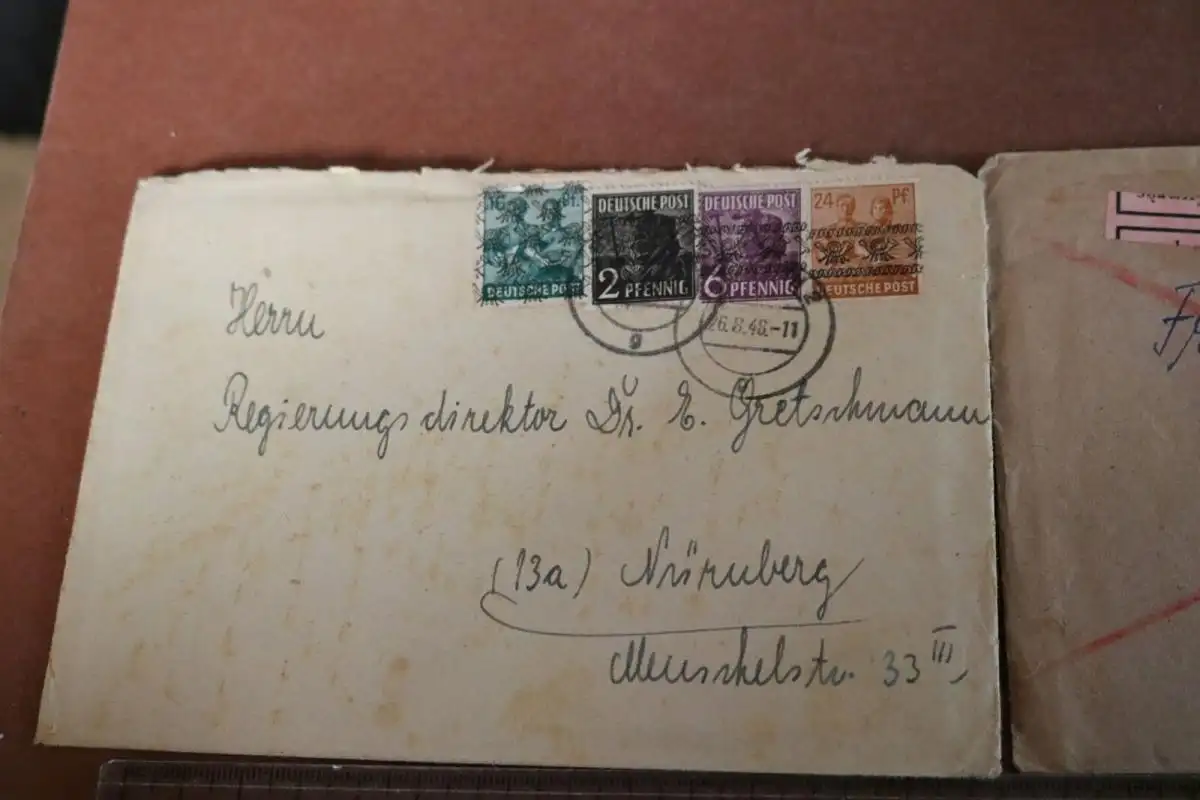 16 Pf
DEUTSCHE POST
DEUTSCHE POST
2 PFENNIG
DEUTSCHE POST
6 PFENNIG
24 Pf
DEUTSCHE POST
g
26.8.48.-11
Herrn
Regierungsdirektor Dr. E. Gretschmann
(13a) Nürnberg
Meuschelstr. 33 III